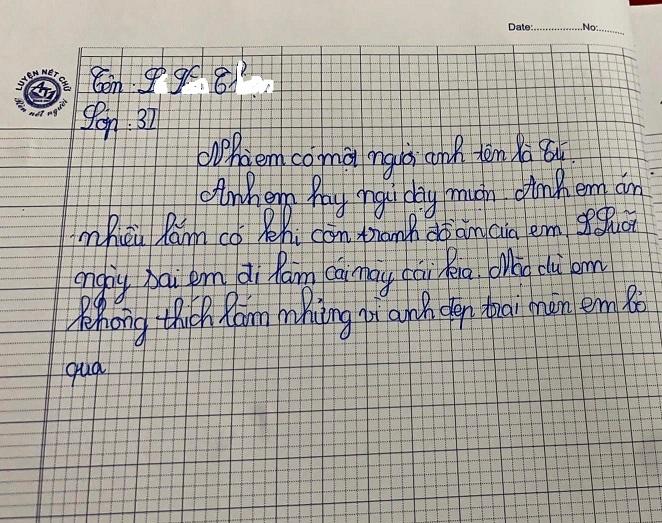 Date:..................No:..........
LUYỆN NÉT CHỮ
Rèn nết người
Tên:
Lớp: 3I
Nhà em có một người anh tên là Tú.
Anh em hay ngủ dậy muộn. Anh em ăn
nhiều lắm có khi còn tranh đồ ăn của em. Suốt
ngày sai em đi làm cái này cái kia. Mặc dù em
không thích lắm nhưng vì anh đẹp trai nên em bỏ
qua